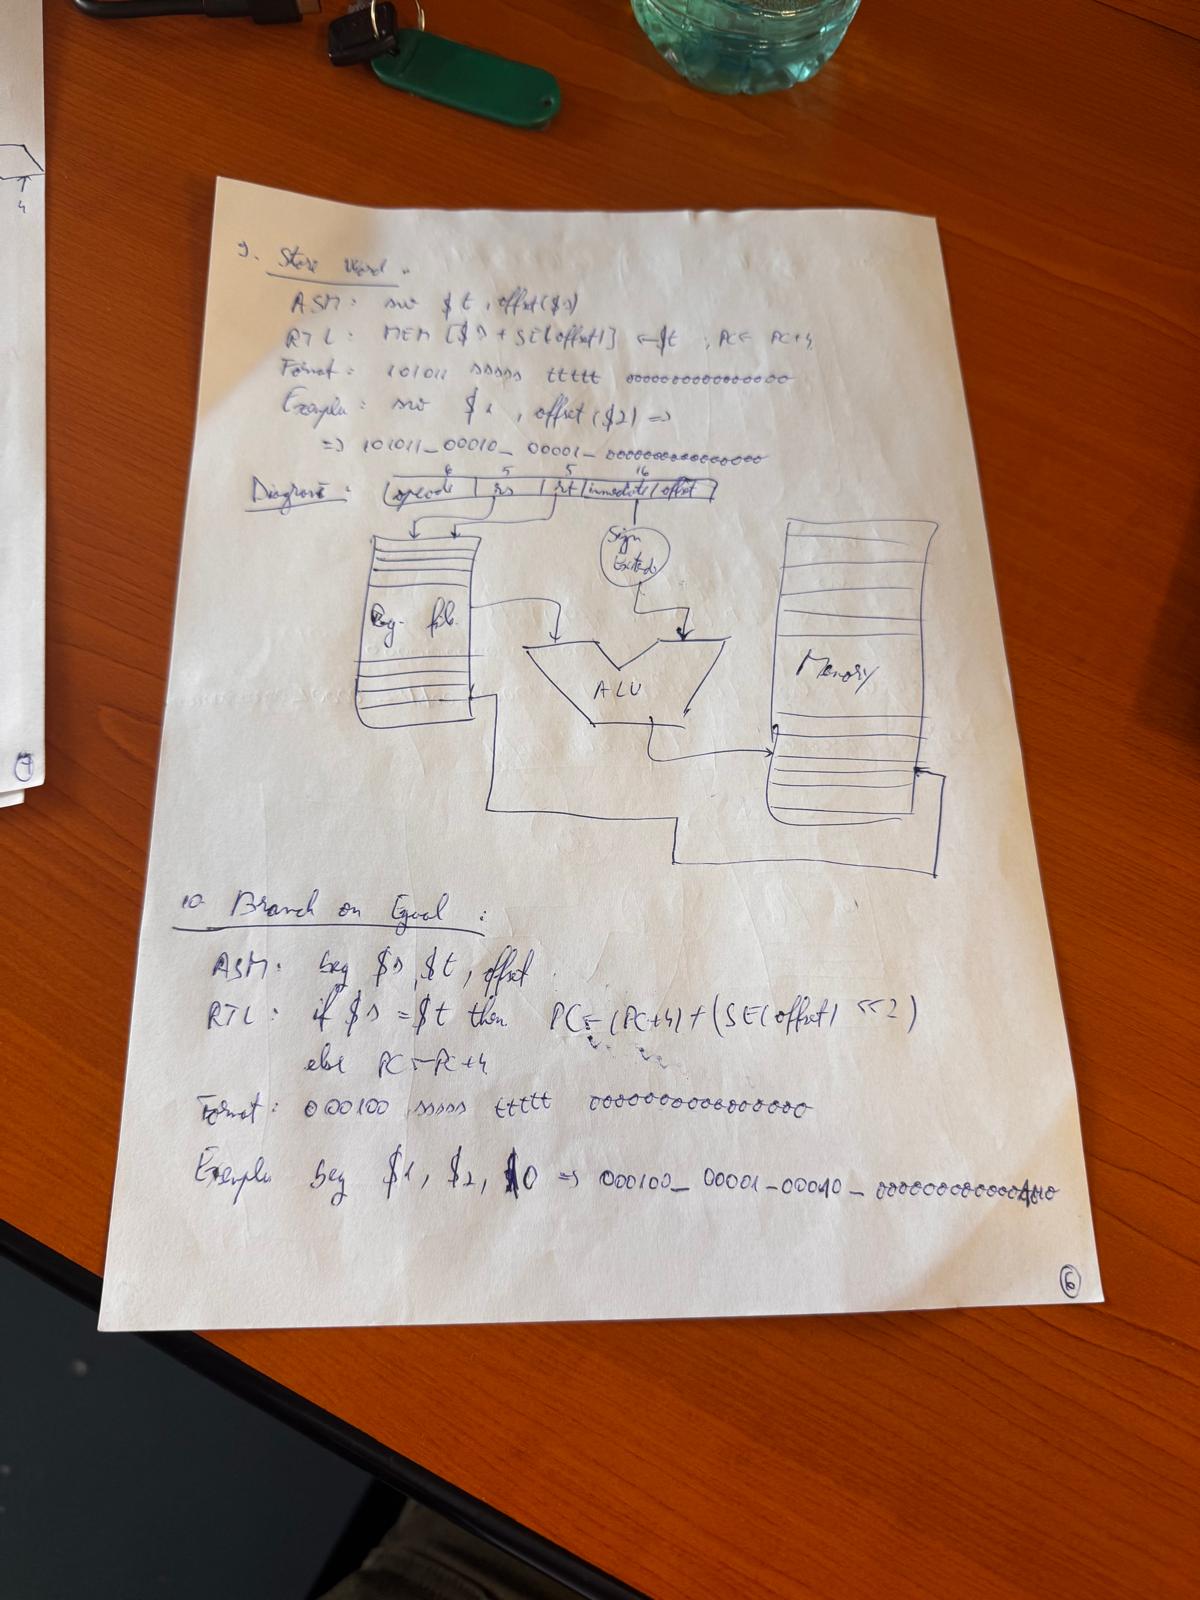 4
7
9. Store Word.
ASM: sw $t, offset($s)
RTL: MEM [$s + SE(offset)] ← $t ; PC ← PC+4
Format: 101011 sssss ttttt oooooooooooooooo
Exemplu: sw $1, offset($2) =>
=> 101011_00010_00001_oooooooooooooooo
6 5 5 16
Diagramă: opcode rs rt immediate/offset
Sign
Extend
Reg. file
Memory
ALU
10. Branch on Equal:
ASM: beq $s, $t, offset
RTL: if $s = $t then PC ← (PC+4) + (SE(offset) << 2)
else PC ← PC+4
Format: 000100 sssss ttttt oooooooooooooooo
Exemplu beq $1, $2, 10 => 000100_00001_00010_
6